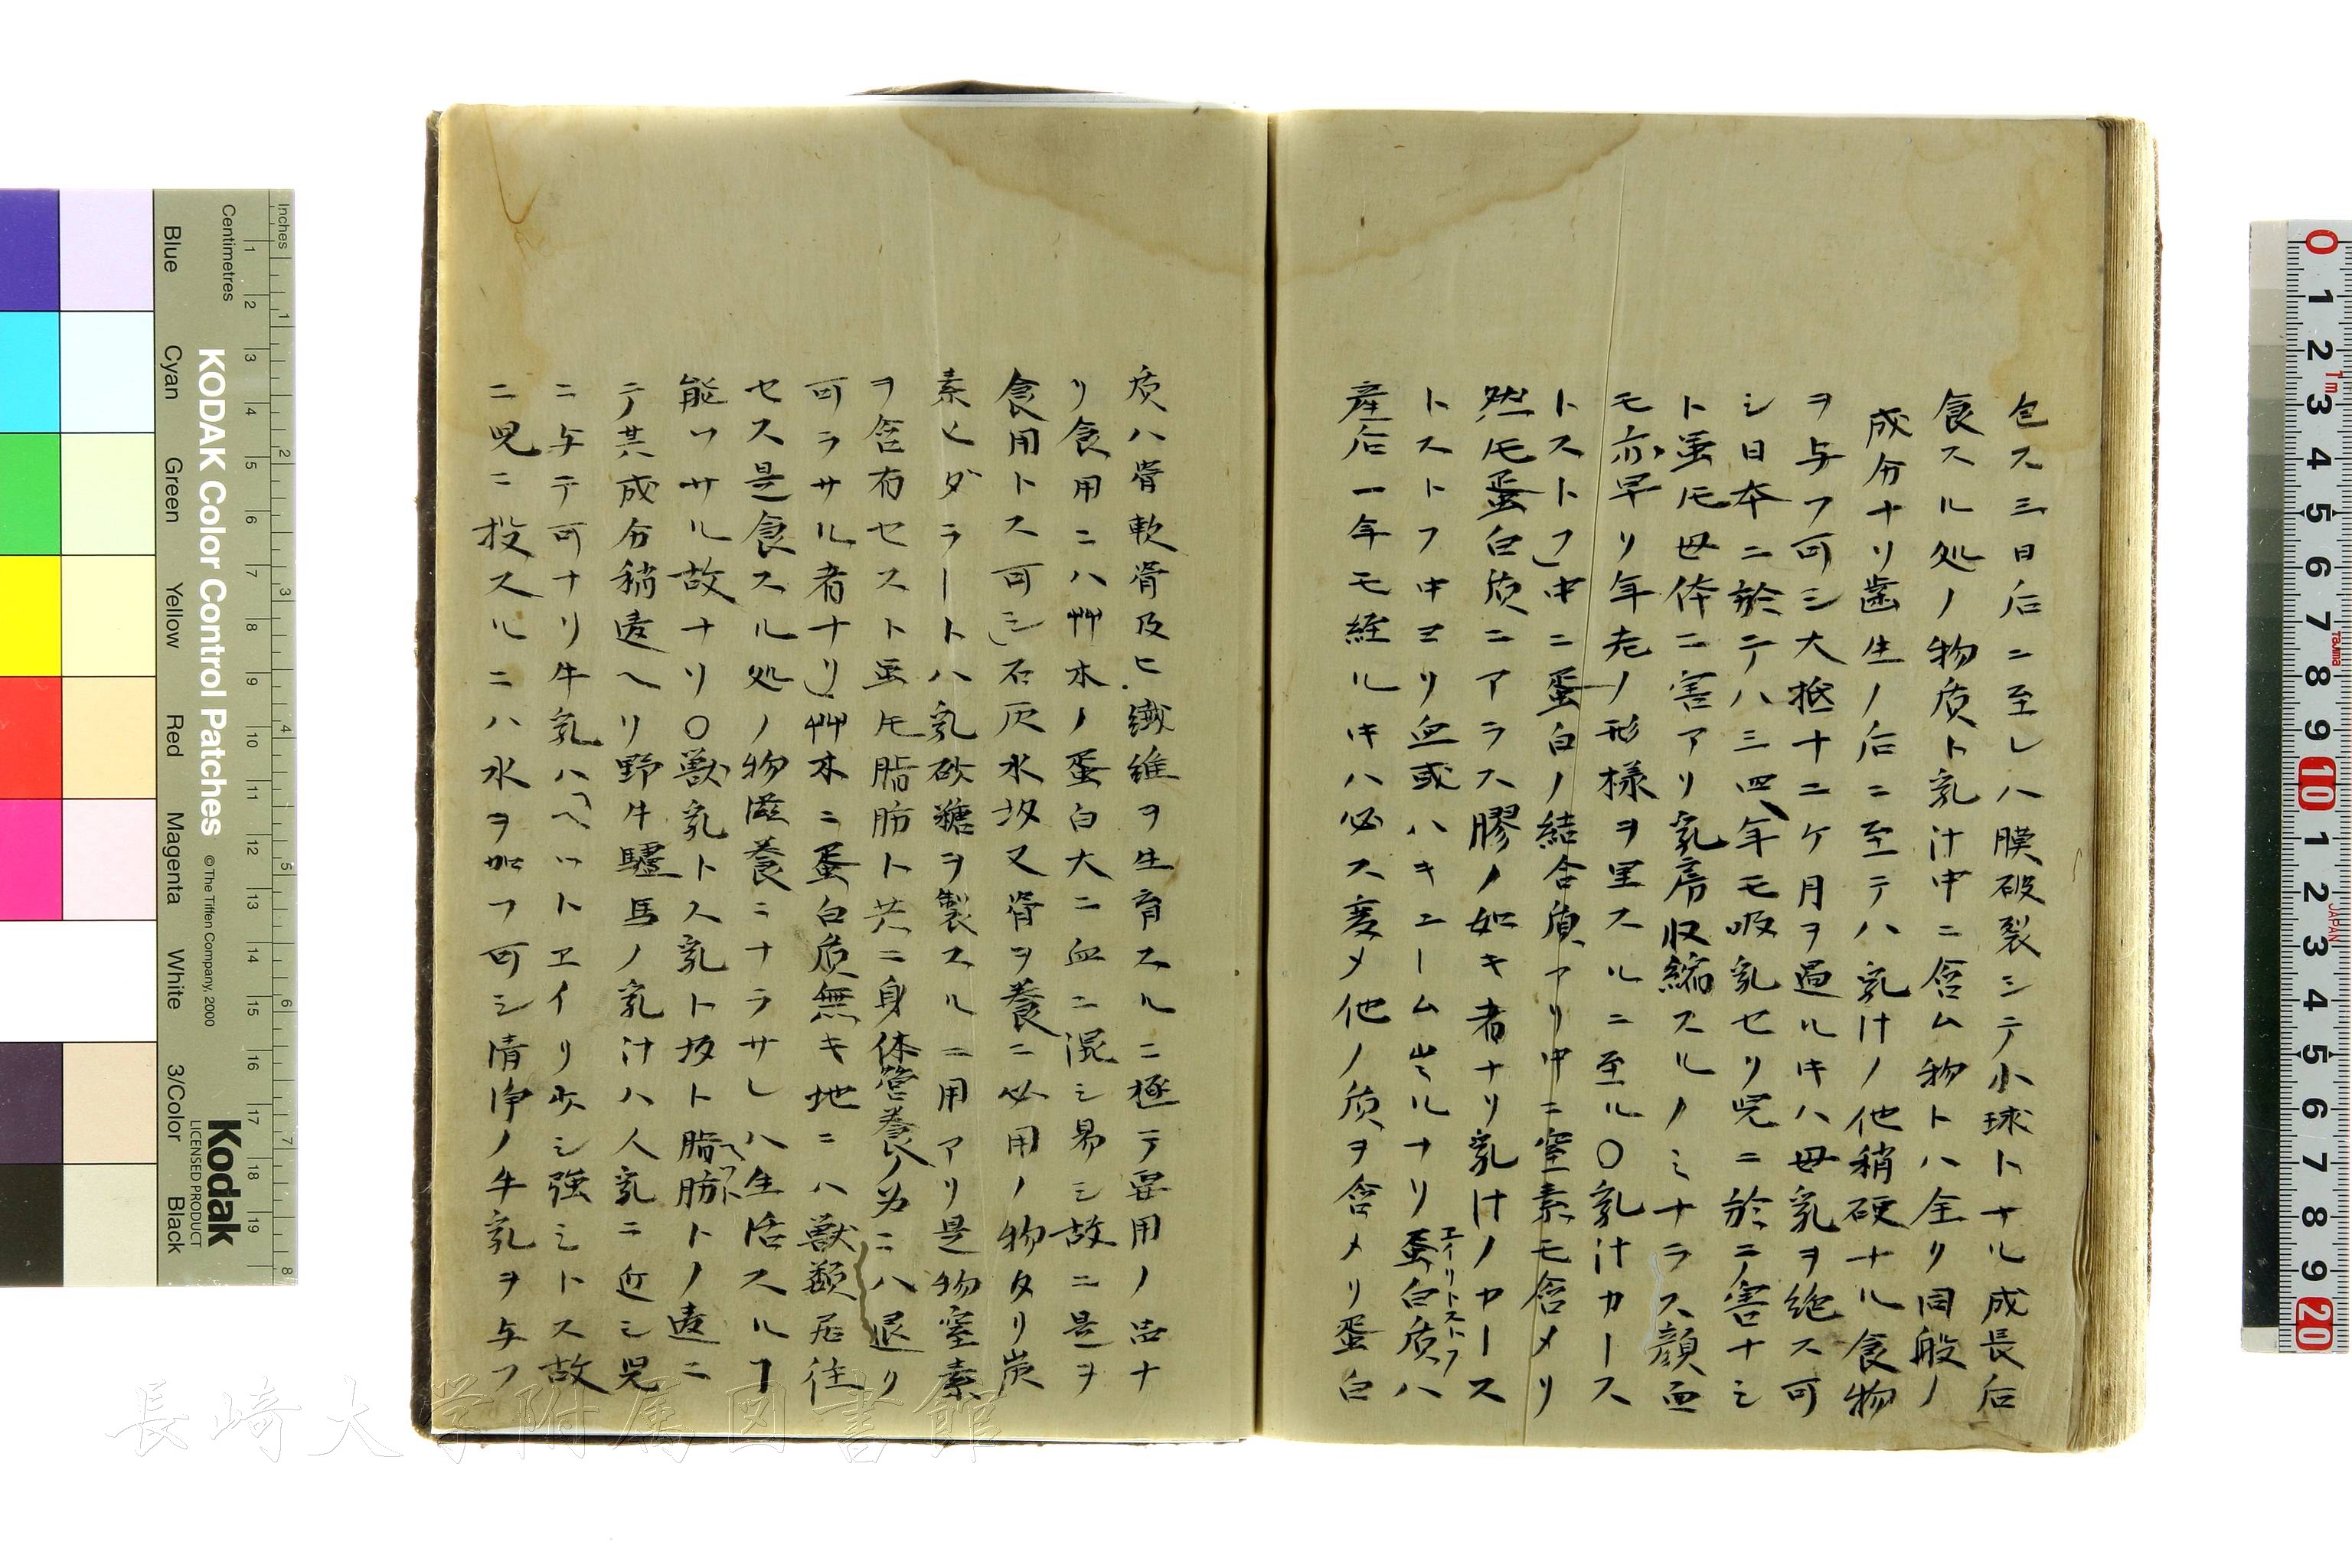 包ス三日后ニ至レハ膜破裂シテ小球トナル成長后
食スル処ノ物质ト乳汁中ニ含ム物トハ全ク同般ノ
成分ナリ歯生ノ后ニ至テハ乳汁ノ他稍硬ナル食物
ヲ与フ可シ大抵十二ケ月ヲ過ルキハ母乳ヲ絶ス可
シ日本ニ於テハ三四年モ吸乳セリ児ニ於テ害ナシ
ト虽𪜈母体ニ害アリ乳房収縮スルノミナラス顔面
モ亦早ク年老ノ形様ヲ里スルニ至ル〇乳汁カース
トストフ中ニ蛋白ノ結合质アリ中ニ窒素モ含メリ
然𪜈蛋白质ニアラス膠ノ如キ者ナリ乳汁ノカース
トストフ中ヨリ血或ハキユーム生ルナリ蛋白质ハ
エイリトストフ
産后一年モ経ルキハ必ス変メ他ノ质ヲ含メリ蛋白
质ハ骨軟骨及ヒ繊維ヲ生育スルニ極テ要用ノ品ナ
リ食用ニハ艸木ノ蛋白大ニ血ニ混シ易シ故ニ是ヲ
食用トス可シ石灰水圾又骨ヲ養ニ必用ノ物タリ炭
素ヒダラートハ乳砂糖ヲ製スルニ用アリ是物窒素
ヲ含有セスト虽𪜈脂肪ト共ニ身体営養ノ为ニハ退ク
可ラサル者ナリ艸木ニ蛋白质無キ地ニハ獣類居住
セス是食スル処ノ物滋養ニナラサレハ生活スルヿ
能ワサル故ナリ〇獣乳トス乳ト圾ト脂肪トノ違ニ
テ其成分稍違ヘリ野牛驢馬ノ乳汁ハ人乳ニ近シ児
ニ与テ可ナリ牛乳ハヘットヱイリ少シ強シトス故
ニ児ニ投スルニハ水ヲ加フ可シ清浄ノ牛乳ヲ与フ
KODAK Color Control Patches
© The Tiffen Company, 2000
Kodak
LICENSED PRODUCT
Inches
Centimetres
Blue Cyan Green Yellow Red Magenta White 3/Color Black
1 2 3 4 5 6 7 8 9 10 11 12 13 14 15 16 17 18 19
1 2 3 4 5 6 7 8
0 1 2 3 4 5 6 7 8 9 10 1 2 3 4 5 6 7 8 9 20
1m
Tajima
JAPAN
長崎大学附属図書館